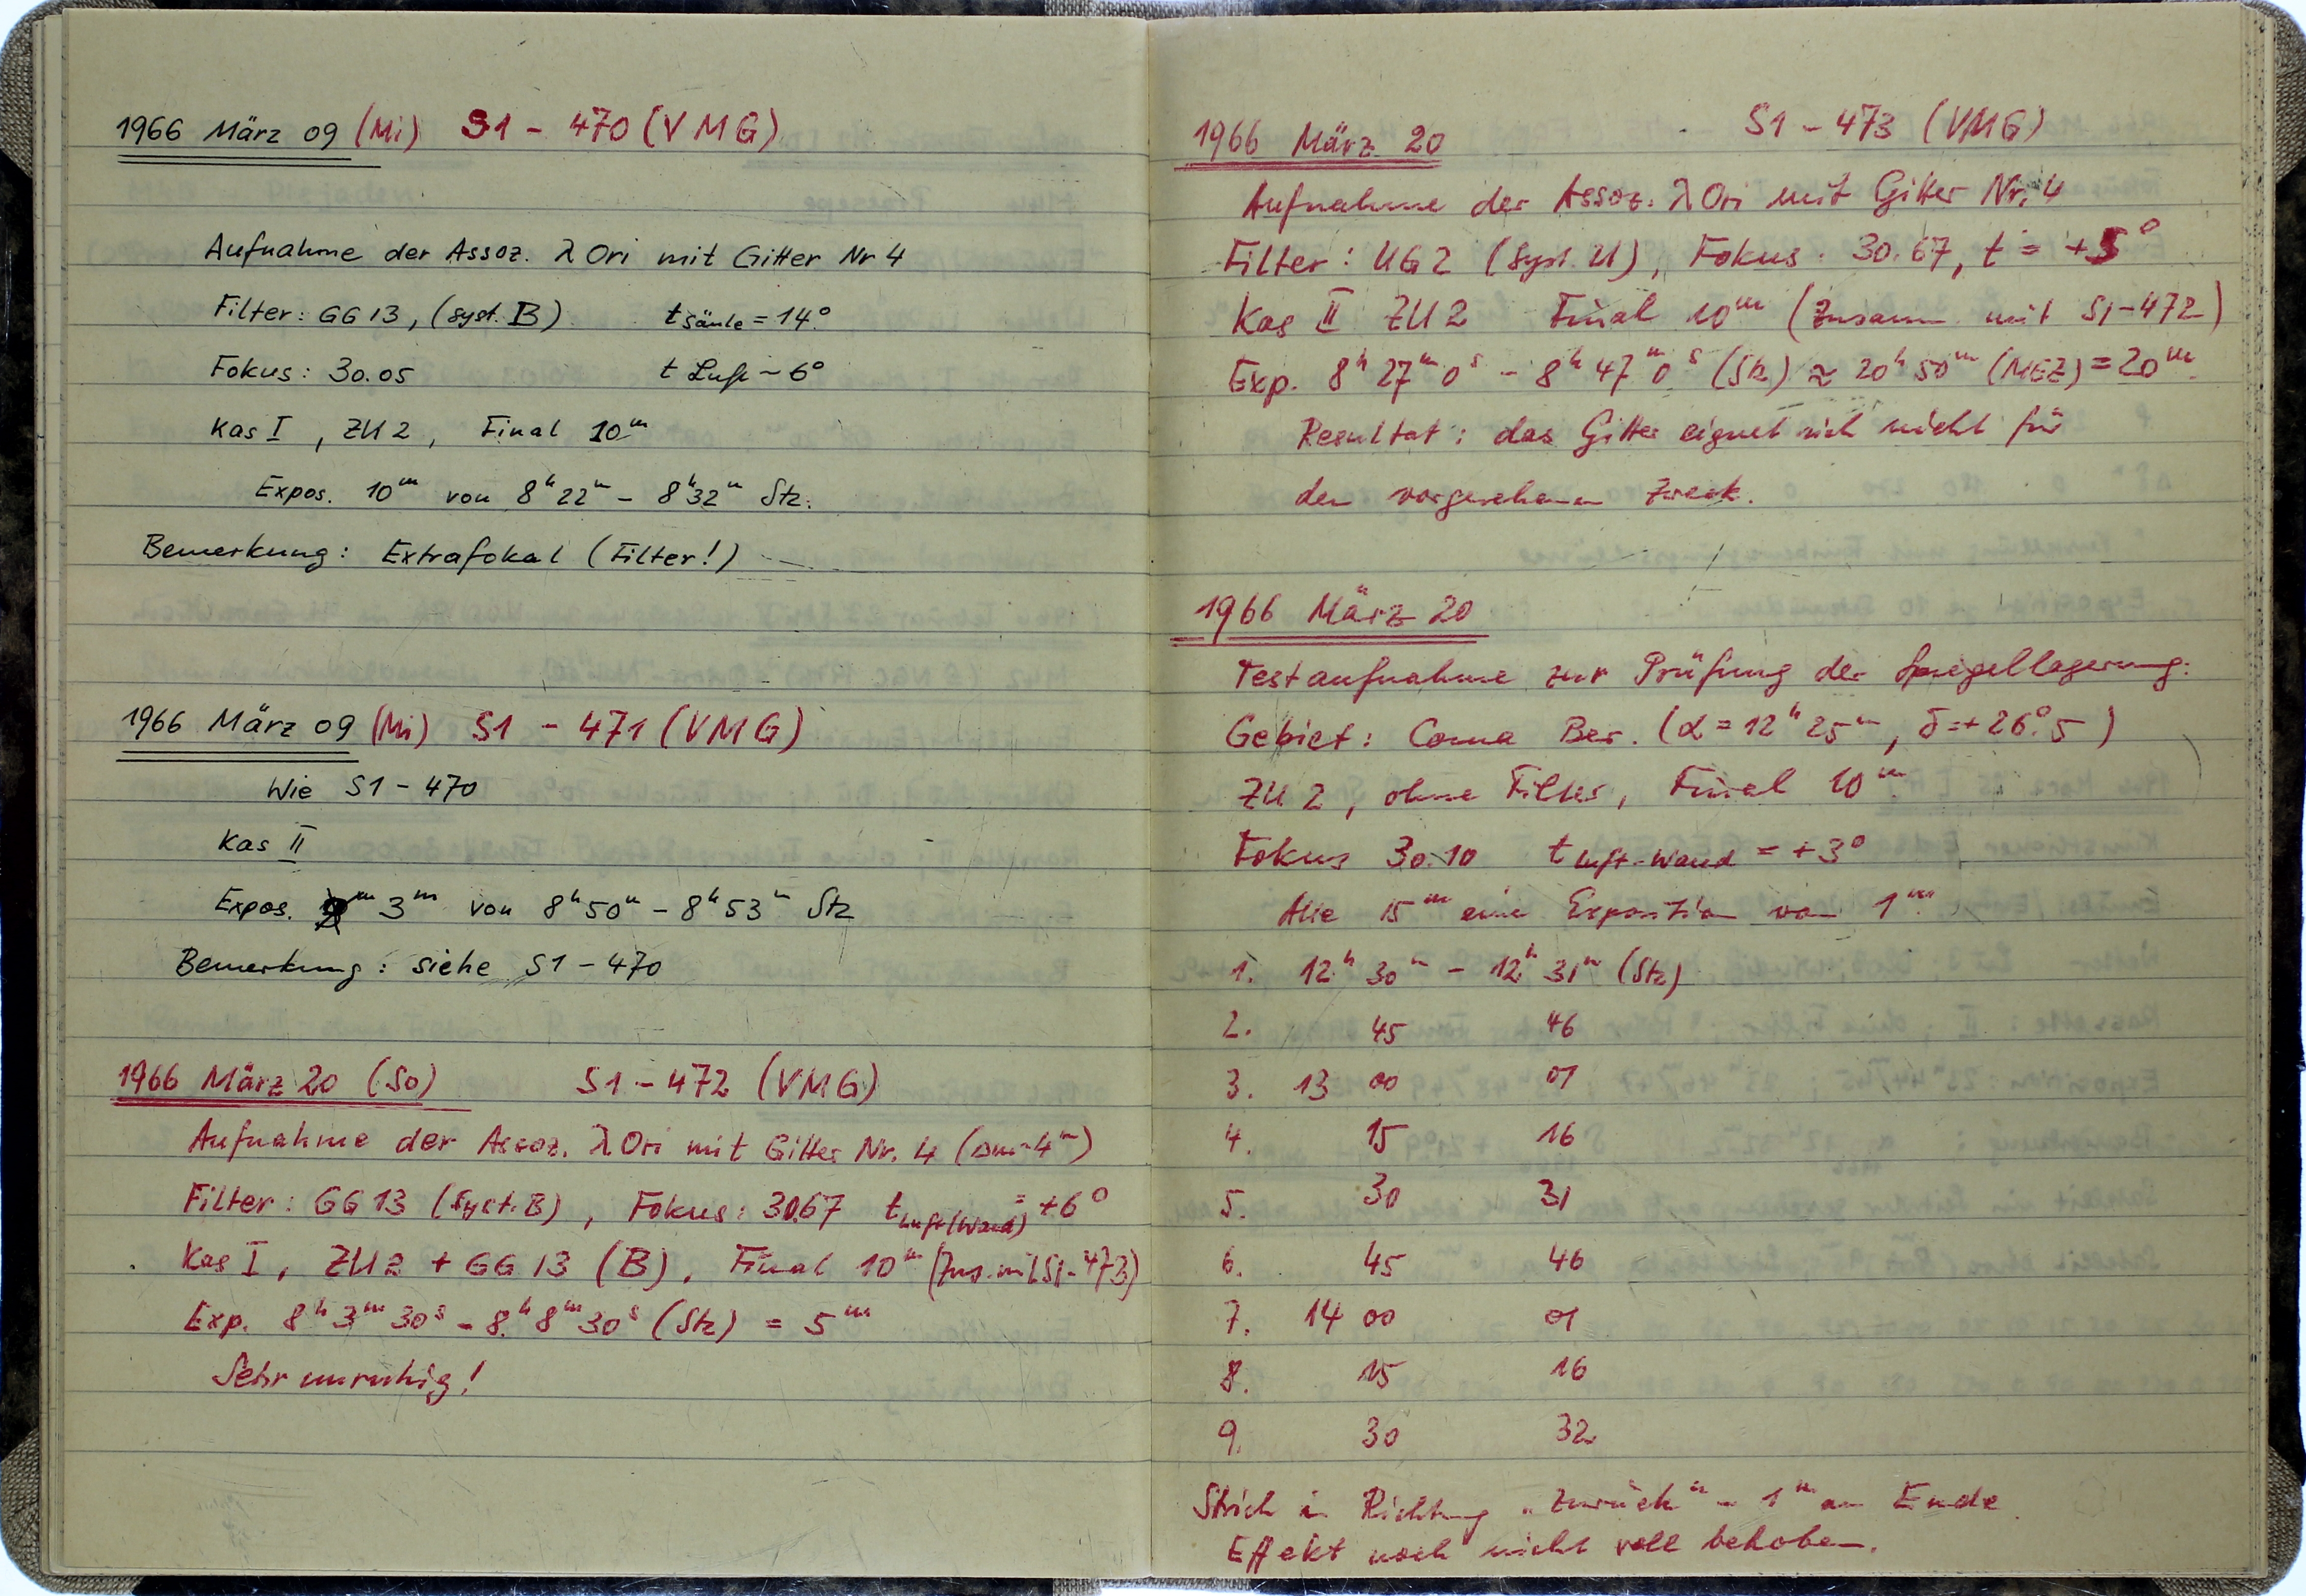 1966 März 09 (Mi) S1 - 470 (VMG)
Aufnahme der Assoz. λ Ori mit Gitter Nr 4
Filter: GG 13, (syst. B) t Säule = 14°
Fokus: 30.05 t Luft ~ 6°
Kas I, ZU 2, Final 10m
Expos. 10m von 8h 22m - 8h 32m Stz.
Bemerkung: Extrafokal (Filter!)
1966 März 09 (Mi) S1 - 471 (VMG)
Wie S1 - 470
Kas II
Expos. 3m von 8h 50m - 8h 53m Stz
Bemerkung: siehe S1 - 470
1966 März 20 (So) S1 - 472 (VMG)
Aufnahme der Assoz. λ Ori mit Gitter Nr. 4 (Δm~4m)
Filter: GG 13 (Syst. B), Fokus: 30.67 t Luft (Wand) = +6°
Kas I, ZU 2 + GG 13 (B), Final 10m (Zus. mit S1-473)
Exp. 8h 3m 30s - 8h 8m 30s (Stz) = 5m
Sehr unruhig!
S1 - 473 (VMG)
1966 März 20
Aufnahme der Assoz. λ Ori mit Gitter Nr. 4
Filter: UG 2 (Syst. U), Fokus: 30.67, t = +5°
Kas II ZU 2 Final 10m (Zusamm mit S1-472)
Exp. 8h 27m 0s - 8h 47m 0s (Stz) ≈ 20h 50m (MEZ) = 20m
Resultat: das Gitter eignet sich nicht für
den vorgesehenen Zweck.
1966 März 20
Testaufnahme zur Prüfung der Spiegellagerung.
Gebiet: Coma Ber. (α = 12h 25m, δ = +26°.5)
ZU 2, ohne Filter, Final 10m
Fokus 30.10 t Luft-Wand = +3°
Alle 15m eine Exposition von 1m
1. 12h 30m - 12h 31m (Stz)
2. 45 46
3. 13 00 01
4. 15 16
5. 30 31
6. 45 46
7. 14 00 01
8. 15 16
9. 30 32
Strich in Richtung "zurück" ~ 1m am Ende
Effekt noch nicht voll behoben.